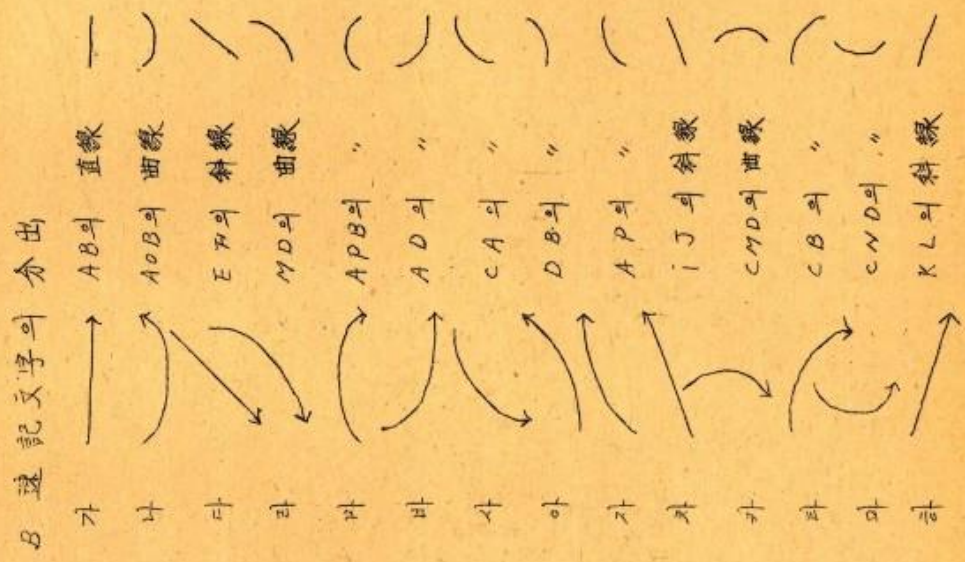 B 速記文字의 分出
가 AB의 直線
나 AOB의 曲線
다 EF의 斜線
라 MD의 曲線
마 APB의 〃
바 AD의 〃
사 CA의 〃
아 DB의 〃
자 AP의 〃
차 iJ의 斜線
카 CMD의 曲線
타 CB의 〃
파 CND의 〃
하 KL의 斜線